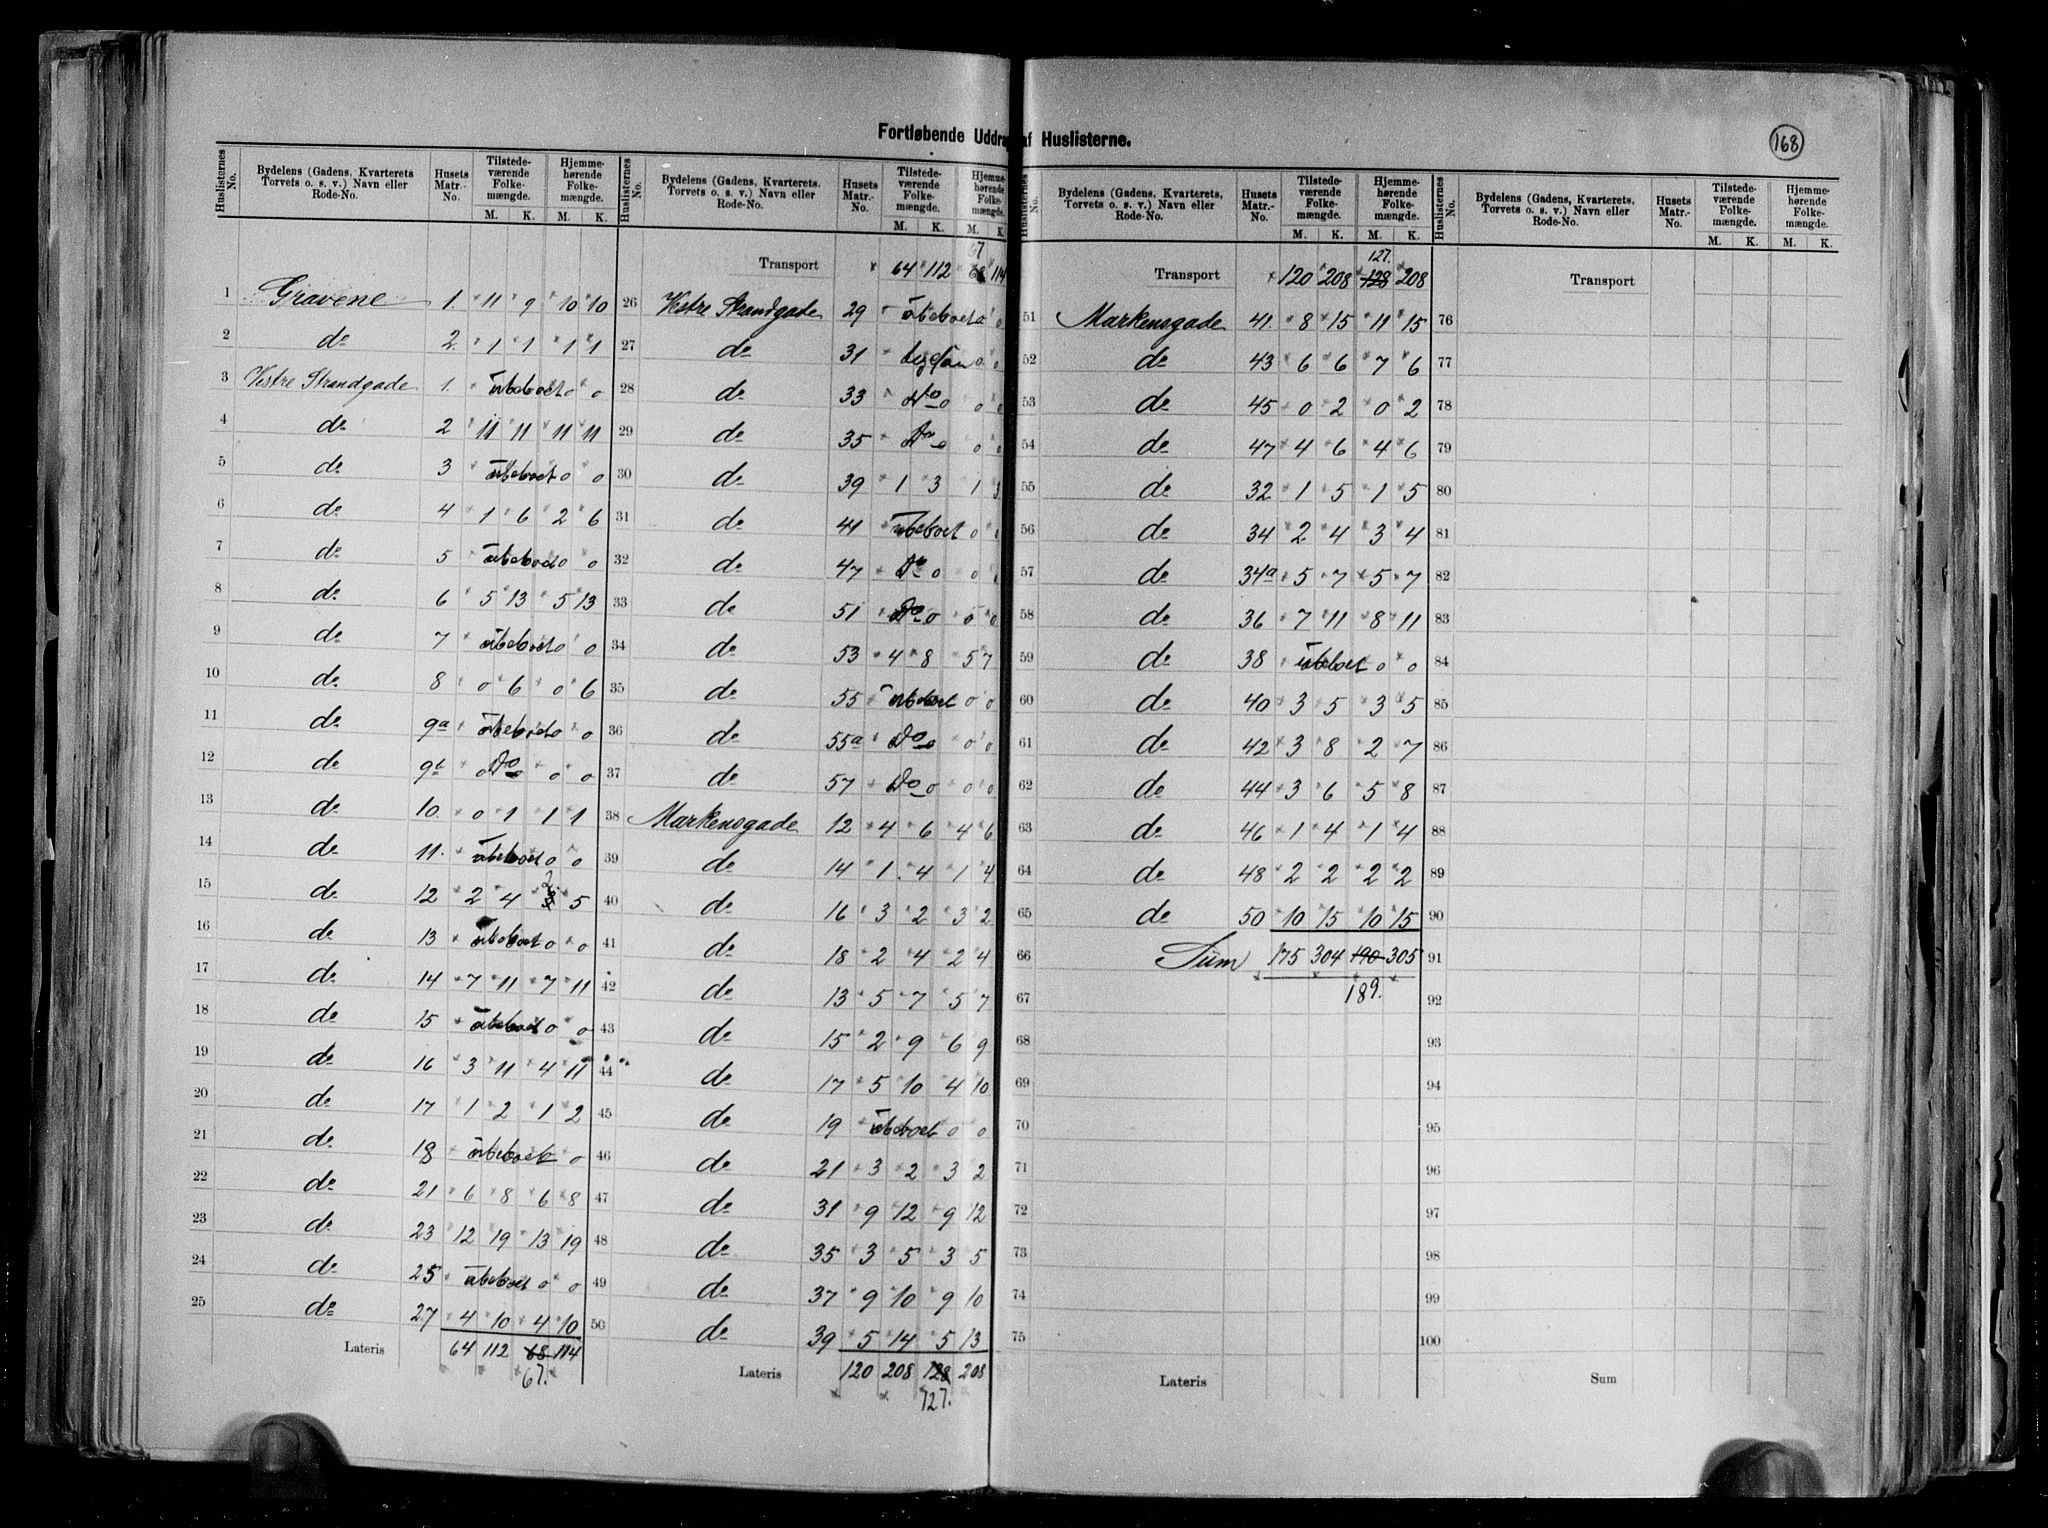 Fortløbende Uddrag af Huslisterne.
168
Huslisternes No. | Bydelens (Gadens, Kvarterets, Torvets o. s. v.) Navn eller Rode-No. | Husets Matr.-No. | Tilstedeværende Folkemængde. M. K. | Hjemmehørende Folkemængde. M. K.
1 Gravene 1. 11 9 10 10
2 do 2. 1 1 1 1
3 Vestre Strandgade 1. ubeboet 0 0
4 do 2 11 11 11 11
5 do 3 ubeboet 0 0
6 do 4 1 6 2 6
7 do 5 ubeboet 0 0
8 do 6 5 13 5 13
9 do 7 ubeboet 0 0
10 do 8 0 6 0 6
11 do 9a ubeboet 0 0
12 do 9b Do 0 0
13 do 10. 0 1 1 1
14 do 11. ubeboet 0 0
15 do 12 2 4 2 5
16 do 13 ubeboet 0 0
17 do 14 7 11 7 11
18 do 15 ubeboet 0 0
19 do 16 3 11 4 11
20 do 17 1 2 1 2
21 do 18 ubeboet 0
22 do 21 6 8 6 8
23 do 23 12 19 13 19
24 do 25 ubeboet 0 0
25 do 27 4 10 4 10
Lateris 64 112 68 114
67.
Huslisternes No. | Bydelens (Gadens, Kvarterets, Torvets o. s. v.) Navn eller Rode-No. | Husets Matr.-No. | Tilstedeværende Folkemængde. M. K. | Hjemmehørende Folkemængde. M. K.
67
Transport 64 112 68 114
26 Vestre Strandgade 29 ubeboet 0
27 do 31 0 0
28 do 33 Do 0 0 0
29 do 35 Do 0 0
30 do 39 1 3 1 3
31 do 41 ubeboet 0 0
32 do 47 Do 0 0 0
33 do 51 Do 0 0 0
34 do 53 4 8 5 7
35 do 55 ubeboet 0 0
36 do 55a Do 0 0
37 do 57 Do 0 0 0
38 Markensgade 12 4 6 4 6
39 do 14 1 4 1 4
40 do 16 3 2 3 2
41 do 18 2 4 2 4
42 do 13 5 7 5 7
43 do 15 2 9 6 9
44 do 17 5 10 4 10
45 do 19 ubeboet 0 0
46 do 21 3 2 3 2
47 do 31 9 12 9 12
48 do 35 3 5 3 5
49 do 37 9 10 9 10
50 do 39 5 14 5 13
Lateris 120 208 128 208
127.
Huslisternes No. | Bydelens (Gadens, Kvarterets, Torvets o. s. v.) Navn eller Rode-No. | Husets Matr.-No. | Tilstedeværende Folkemængde. M. K. | Hjemmehørende Folkemængde. M. K.
127.
Transport 120 208 128 208
51 Markensgade 41. 8 15 11 15
52 do 43 6 6 7 6
53 do 45 0 2 0 2
54 do 47 4 6 4 6
55 do 32 1 5 1 5
56 do 34 2 4 3 4
57 do 34a 5 7 5 7
58 do 36 7 11 8 11
59 do 38 ubeboet 0 0
60 do 40 3 5 3 5
61 do 42 3 8 2 7
62 do 44 3 6 5 8
63 do 46 1 4 1 4
64 do 48 2 2 2 2
65 do 50 10 15 10 15
66 Sum 175 304 190 305
67 189.
68
69
70
71
72
73
74
75
Lateris
Huslisternes No. | Bydelens (Gadens, Kvarterets, Torvets o. s. v.) Navn eller Rode-No. | Husets Matr.-No. | Tilstedeværende Folkemængde. M. K. | Hjemmehørende Folkemængde. M. K.
Transport
76
77
78
79
80
81
82
83
84
85
86
87
88
89
90
91
92
93
94
95
96
97
98
99
100
Sum